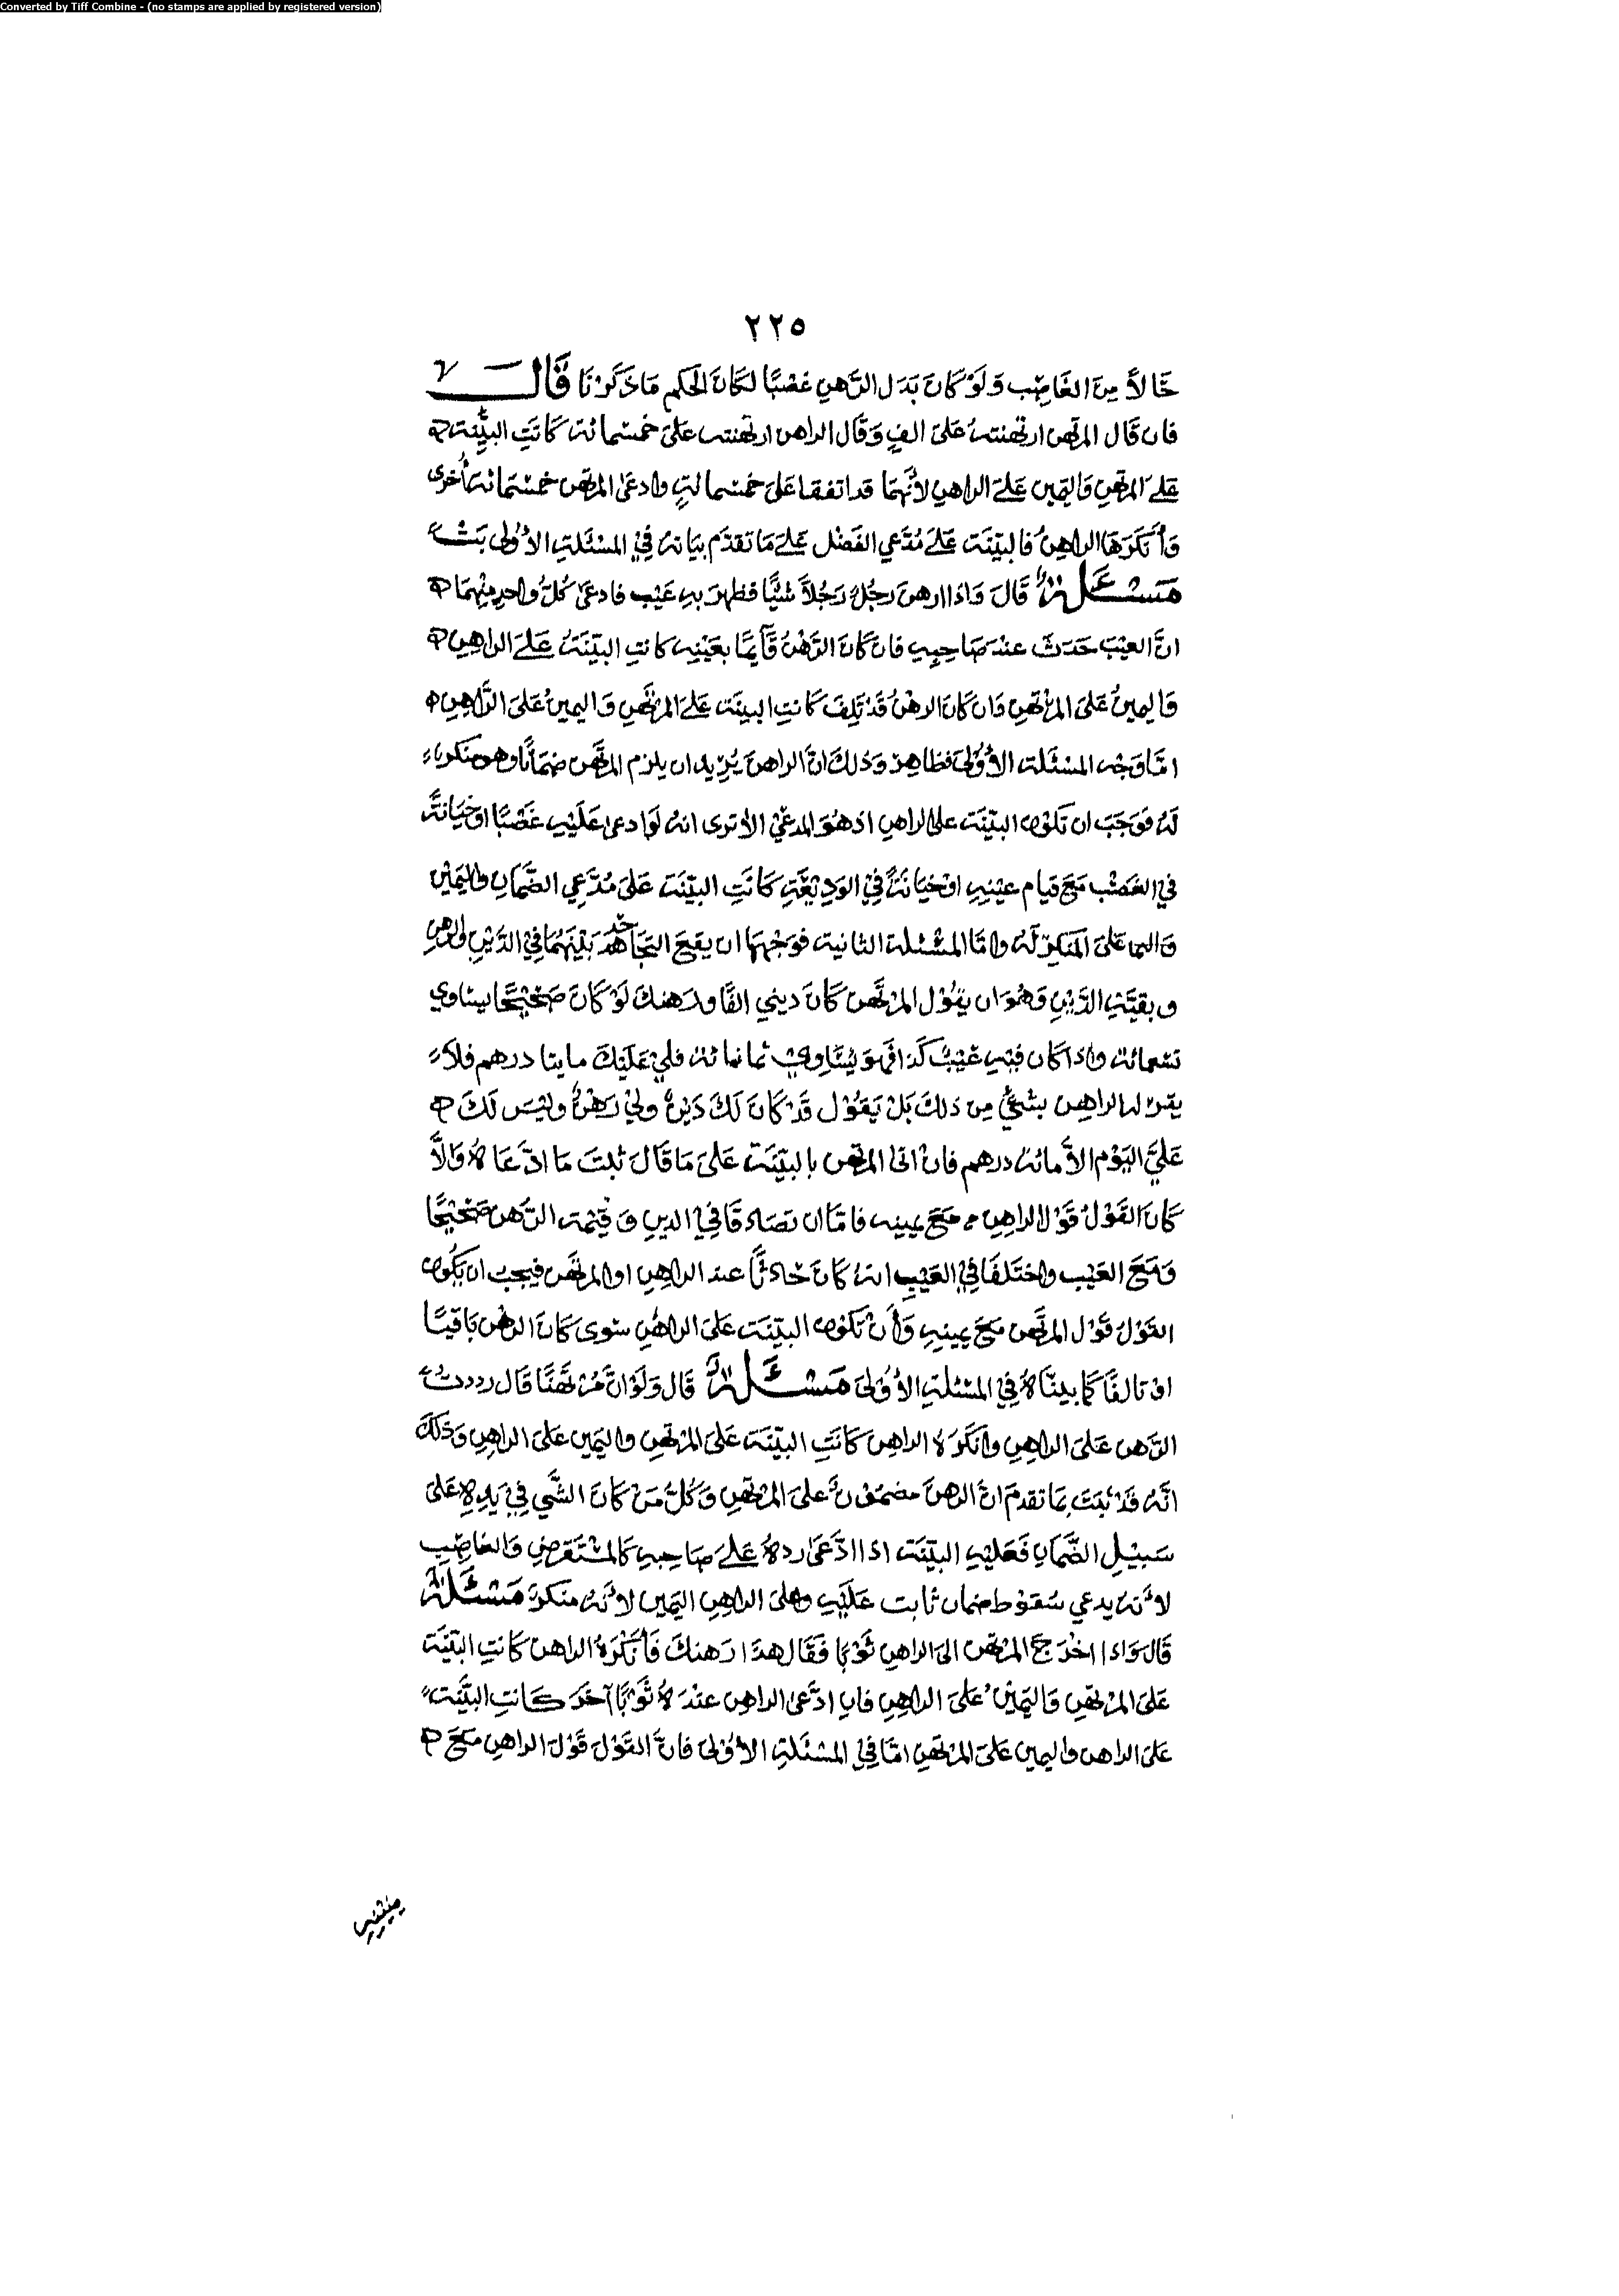 Converted by Tiff Combine - (no stamps are applied by registered version)
٢٢٥
حَالاً مِنَ الغَاصِبِ وَلَوْ كَانَ بَدَل الرَّهنِ غصْبًا لكَانَ الحكم مَا ذَكَرْنَا قَالَ
فان قَال المرتهن ارتهنته عَلىَ الفٍ وَقَال الراهن ارتهنته عَلىَ خمسْمائة كَانَتِ البيِّنة
عَلىَ المرتهنِ وَاليمين عَلىَ الراهنِ لأنَّهمَا قد اتفقا عَلىَ خمسْمائةٍ وادعىَ المرتهن خمسْمَائة أخرى
وَأنكرَهَا الراهِنُ فالبيّنَة عَلىَ مُدَّعي الفَضْل عَلىَ مَا تقدّم بيَانه فِي المسْئَلةِ الأوْلى
مَسْئَلةٌ قَالَ وَاذا ارهنَ رجُلٌ رَجُلاً شيْئًا فظهرَ بهِ عَيْب فادعىَ كُلُّ واحدٍ مِنْهمَا
انَّ العيْبَ حَدَثَ عندَ صَاحِبِهِ فان كَانَ الرَّهْنُ قَآئِمًا بعَيْنِهِ كانتِ البيّنَةُ عَلىَ الراهِنِ
وَاليمينُ عَلىَ المرْتهنِ وَان كَانَ الرهْنُ قَدْ تَلِفَ كَانتِ البينَة عَلىَ المرْتَهنِ وَاليمينُ عَلىَ الرَّاهِنِ
امَّا وَجْه المسْئَلة الأوْلىَ فظاهرٌ وَذلكَ انَّ الراهنَ يُرِيد ان يلزم المرتَهن ضمَانًا وهو منكر
لَهُ فوَجَبَ ان تكوْن البيّنَة على الراهنِ اذ هُوَ المدعيْ الا ترى انهُ لوَ ادعىَ عَلَيْهِ غَصْبًا اوْ خيَانةً
في الغصْب مَعَ قيام عيْنِهِ اوْ خيَانَةً فِيْ الوَدِيْعَةِ كَانَتِ البيّنَة عَلىَ مُدَّعِي الضَّمَانِ وَاليمِيْن
عَلىَ المنكِرِ لَهُ وامَّا المسْئلة الثانية فوَجْههَا ان يقعَ التجَاحد بَيْنَهُمَا فِيْ الدَّيْنِ والرهنِ
وبقيَّةِ الدَّيْنِ وَهُوَ ان يقُوْل المرْتَهن كَانَ ديني الفًا ورَهنك لَوْ كَانَ صَحِيْحًا يسَاوي
تسْعمائة واذا كان فيهِ عَيْبُ كذا فهوَ يُسَاوي ثمانمائة فليْ عَلَيْكَ مايتا درهم فلا
يقرّ له الراهن بشيءٍ مِن ذلكَ بَلْ يَقُوْل قَدْ كَانَ لَكَ دَيْنٌ وَلِيْ رَهْنٌ وليْسَ لَكَ
عَلَيَّ اليَوْم الاَّ مائة درهم فانْ اتى المرتهن بالبيّنَة عَلىَ مَا قَالَ ثبتَ مَا ادَّعَاهُ وَالاَّ
كَانَ القَوْلُ قَوْل الراهِنِ مَعَ يمينه فامَّا ان تصَادقَا فِيْ الدينِ وَقِيْمة الرَّهْن صَحِيْحًا
وَمَعَ العَيْب واخْتَلفَا فِي العَيْبِ انهُ كَانَ حَادثًا عند الراهِنِ اوالمرتَهن فيجبُ ان يكُوْن
القَوْلُ قَوْل المرتَهن مَعَ يمينهِ وَأنْ تكوْن البيّنَة عَلىَ الراهِنِ سَوى كَانَ الرهْن بَاقيًا
اوْ تَالفًا كَمَا بينَّاهُ فِي المسْئلةِ الأوْلىَ مَسْئَلةٌ قَال وَلَوْ انَّ مُرْتَهِنًا قَال رددتُ
الرَّهن عَلىَ الراهِنِ وَانكَرَهُ الراهِنُ كَانَتِ البيّنَة عَلىَ المرْتهنِ واليَمين عَلىَ الراهِنِ وَذلكَ
انَّهُ قَدْ ثبَتَ بمَا تقدمَ انَّ الرهنَ مضمَوْنٌ عَلىَ المرْتهنِ وَكُلُّ مَنْ كَانَ الشَّي فِيْ يَدِهِ عَلىَ
سَبيْلِ الضَّمَانِ فَعَليْهِ البيّنَة اذا ادَّعَىَ ردهُ عَلىَ صَاحِبهِ كَالمسْتَقرضِ وَالغاصِبِ
لأنَّه يدعي سُقوْط ضمان ثابت عَلَيْهِ وعلىَ الراهِنِ اليَمين لأنَّهُ منكرٌ مَسْئَلةٌ
قَالَ وَاذا اخْرَجَ المرْتهن الىَ الراهنِ ثَوْبًا فَقَال هذَا رَهنكَ فأنْكَرَهُ الراهن كَانتِ البيّنَة
عَلىَ المرْتهنِ وَاليَمِيْنُ عَلىَ الراهِنِ فان ادَّعىَ الراهن عندَهُ ثَوْبًا آخَرَ كَانتِ البيّنَة
عَلىَ الراهن واليمين عَلىَ المرْتهنِ امَّا فِيْ المسْئَلةِ الأوْلىَ فانَّ القَوْلَ قَوْلَ الراهنِ مَعَ